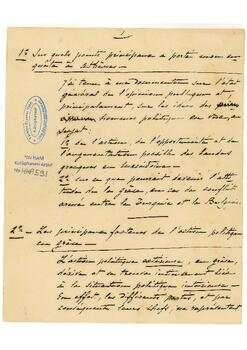 1
1º Sur quels points principaux a porté mon en-
quête en Athènes
J'ai tenu à me documenter sur l'état
général de l'opinion publique et
principalement sur les idées des
hommes politiques en
sujet :
1º de l'action, de l'opportunité et de
l'augmentation possible des bandes
grecques en Macédoine
2º sur ce que pourrait devenir l'atti-
tude de la Grèce, en cas de conflit
armé entre la Turquie et la Bulgarie.
2º - Les principaux facteurs de l'action politique
en Grèce.
L'action politique extérieure, en Grèce,
dérive et se trouve intimement liée
à la situation politique intérieure -
En effet, les différents partis, et par
conséquent leurs chefs, ne représentent